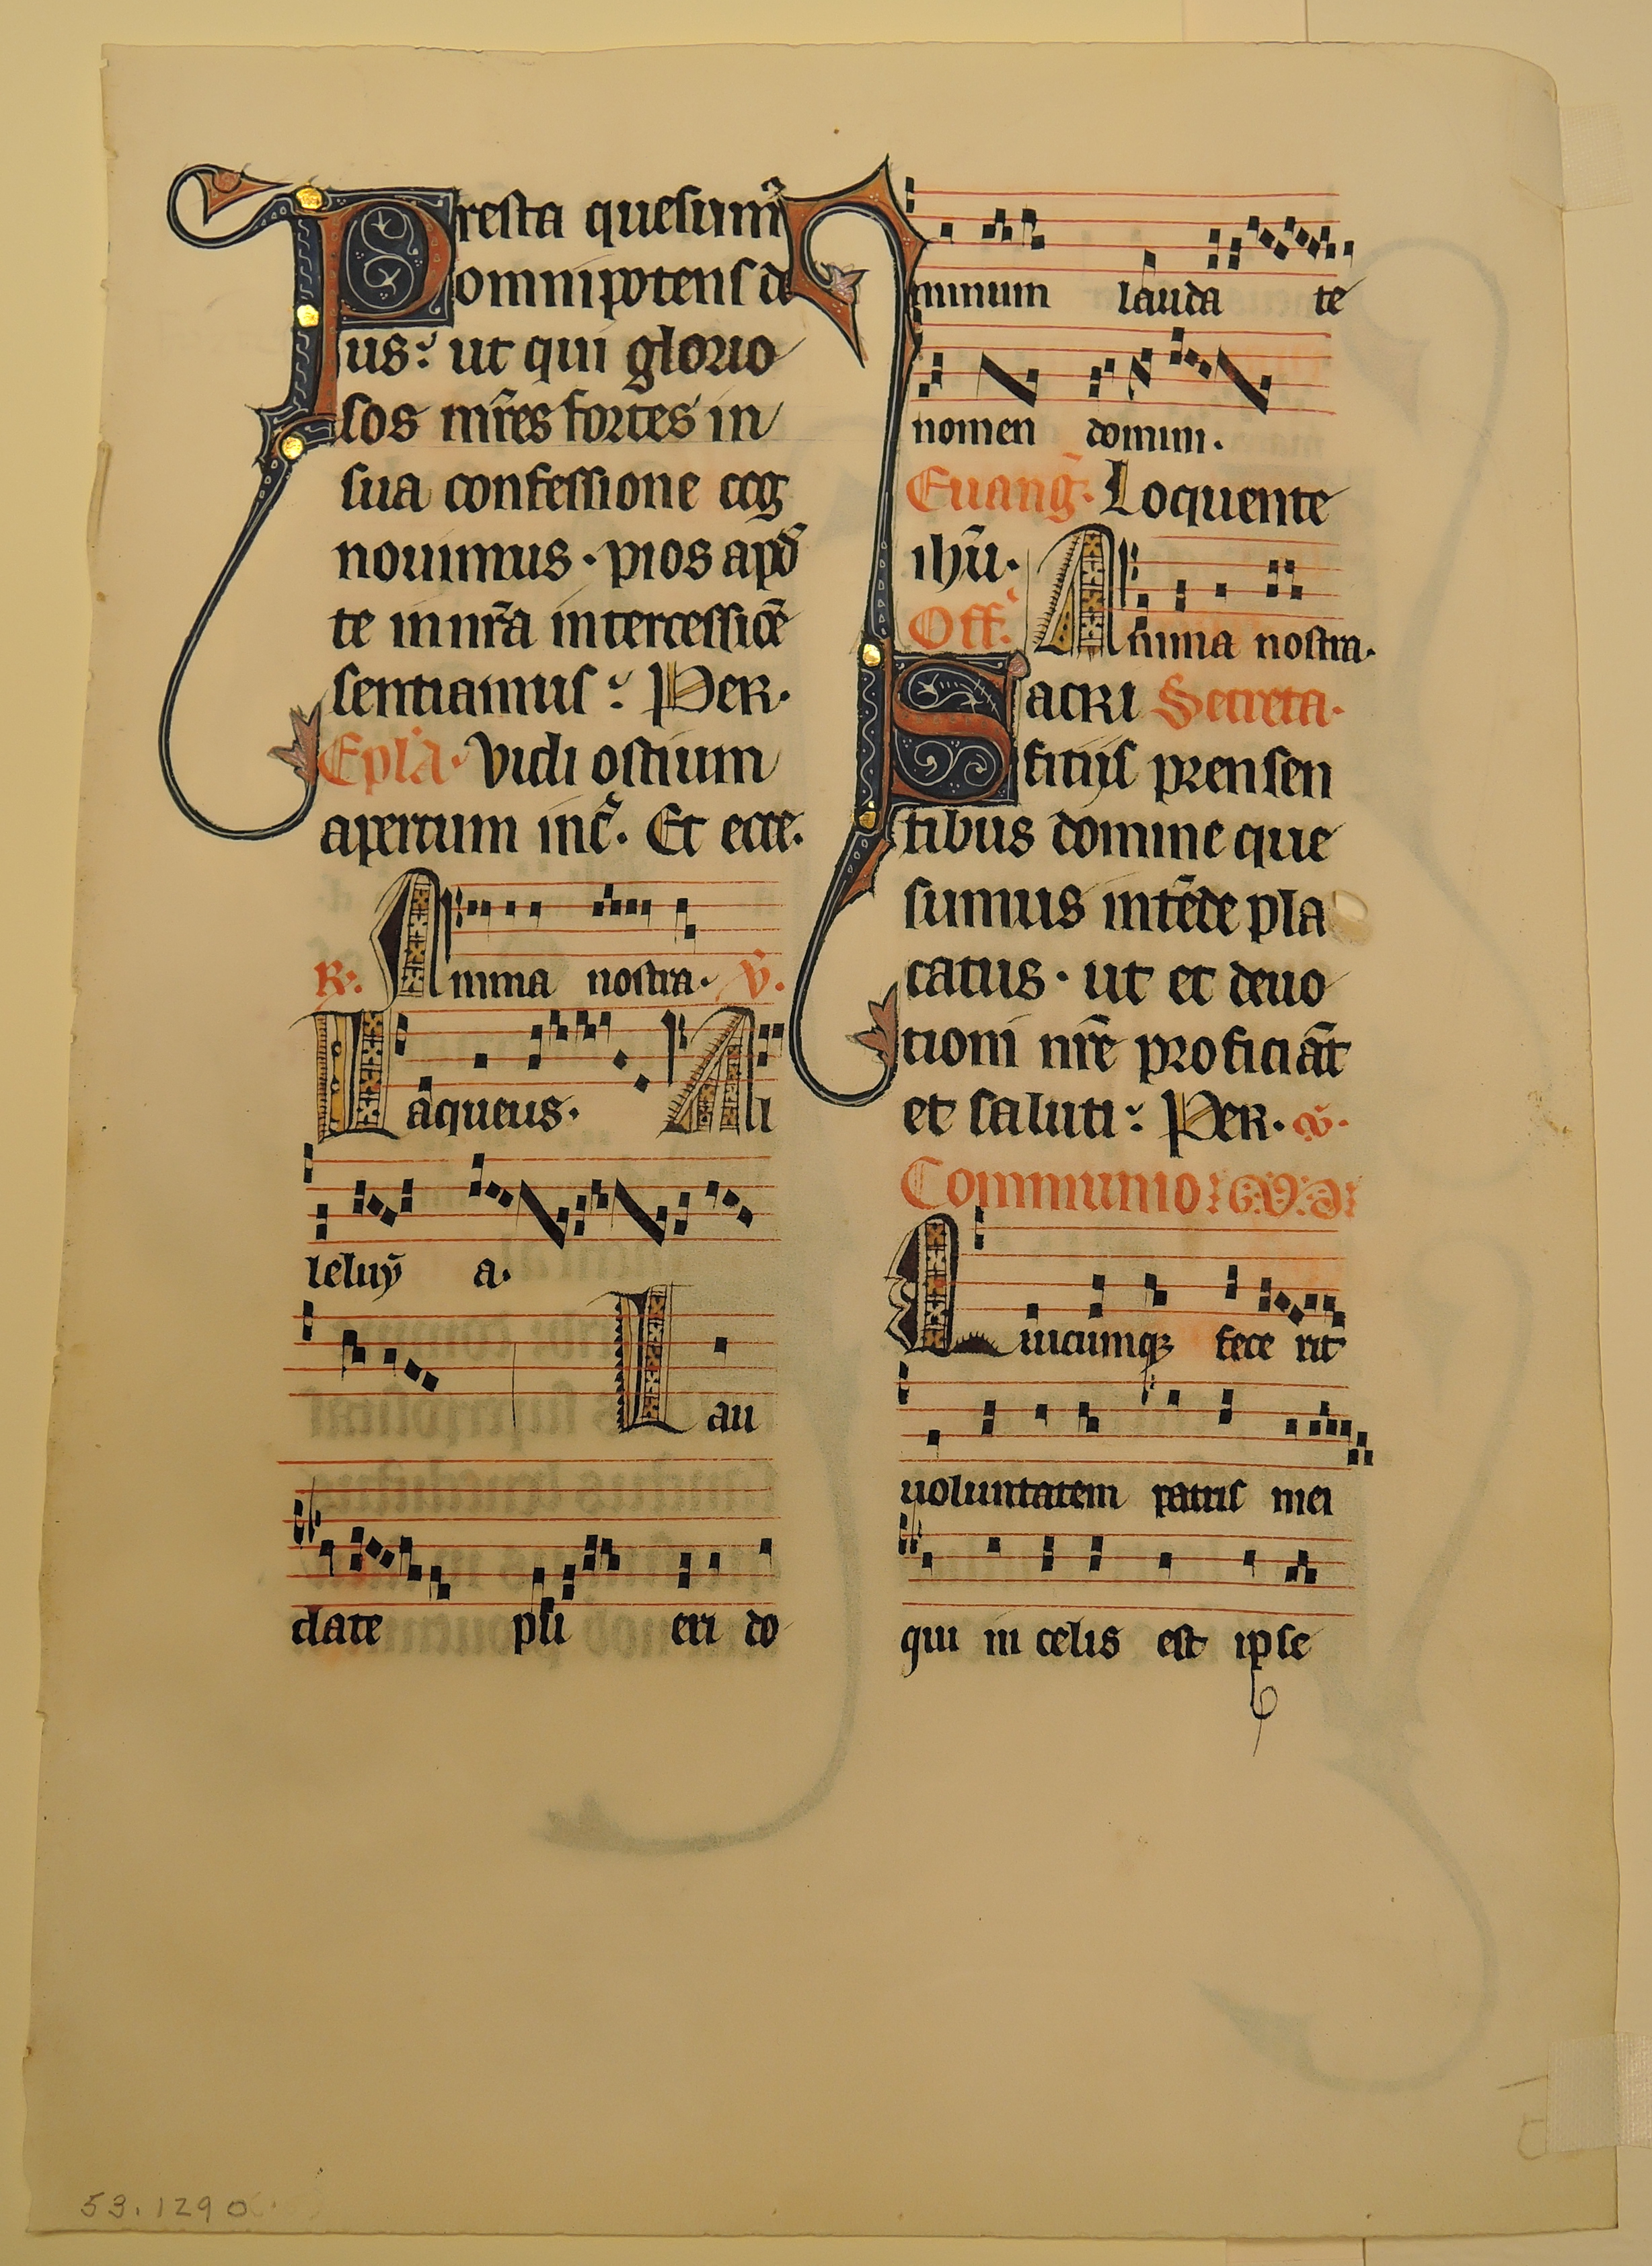 Presta quesumꝰ
omnipotens d
us: ut qui glorio
sos mr̃es fortes in
sua confessione cog
nouimus · pios apđ
te in nrã intercessiõe
sentiamus: Per.
Epl'a. Vidi ostium
apertum inc̃. Et ecce.
R: Anima nostra. v̄.
Laqueus. Al
leluy a.
Lau
date pu eri do
minum lauda te
nomen domini.
Euang̃. Loquente
ihũ.
Off. Anima nostra.
Sacri Secreta.
ficijs prensen
tibus domine que
sumus intẽde pla
catus · ut et deuo
tioni nrẽ proficiãt
et saluti: Per.
Communio:
Quicumqꝫ fece rit
uoluntatem patris mei
qui in celis est ipse
53.1290